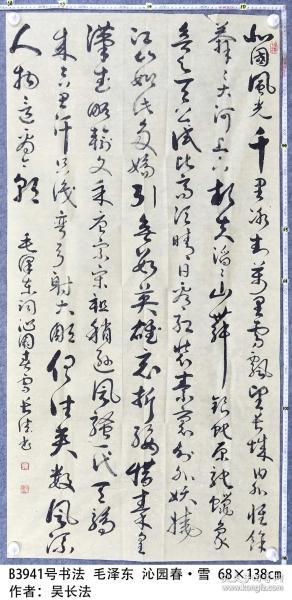 北國風光千里冰封萬里雪飘望长城内外惟餘
莽莽大河上下顿失滔滔山舞银蛇原驰蜡象
欲与天公试比高须晴日看红装素裹分外妖娆
江山如此多娇引無数英雄竞折腰惜秦皇
漢武略输文采唐宗宋祖稍逊風骚一代天骄
成吉思汗只识弯弓射大雕俱往矣数風流
人物还看今朝
毛泽东词沁园春雪长法书
B3941号书法 毛泽东 沁园春·雪 68×138cm
作者：吴长法